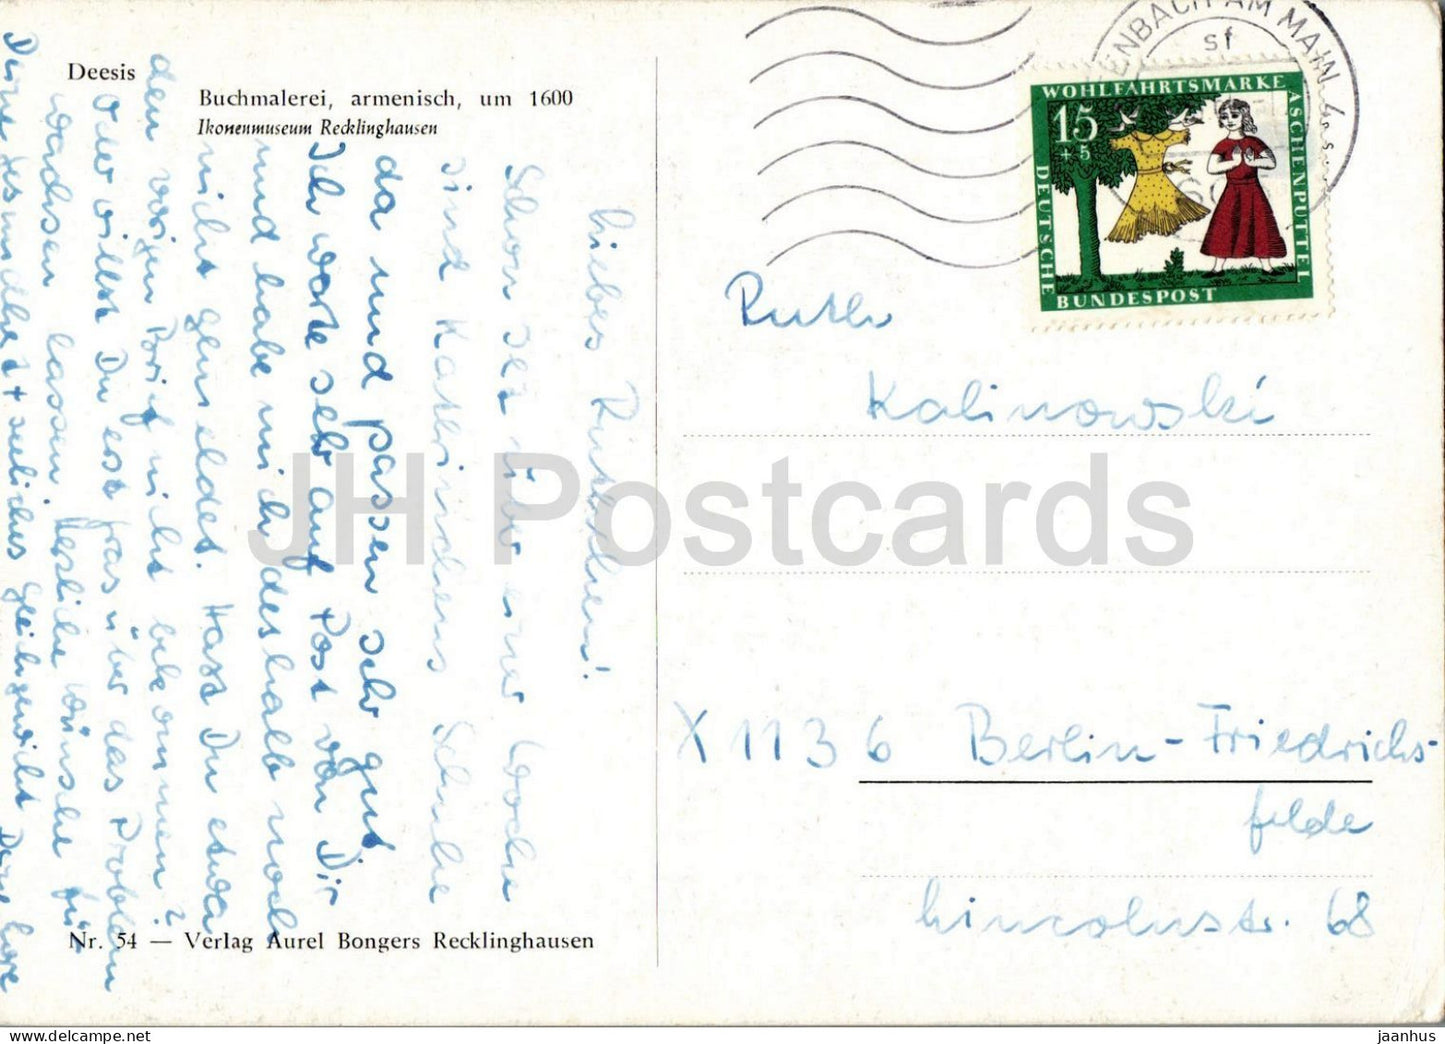 Deesis
Buchmalerei, armenisch, um 1600
Ikonenmuseum Recklinghausen
Liebes Ruthchen!
Schon seit über einer Woche
sind Kathrinchens Schuhe
da und passen sehr gut.
Ich warte sehr auf Post von Dir
und habe mich deshalb noch
nicht gemeldet. Hast Du etwa
den vorigen Brief nicht bekommen?
Oder willst Du erst gras über das Problem
wachsen lassen. Herzliche Wünsche für
Deine Gesundheit + seeliches Gleichgewicht Deine
Nr. 54 — Verlag Aurel Bongers Recklinghausen
ENBACH AM MAIN 4
sf
WOHLFAHRTSMARKE
ASCHENPUTTEL
15
+5
DEUTSCHE
BUNDESPOST
Ruth
Kalinowski
X 1136 Berlin-Friedrichs-
felde
Lincolnstr. 68
JH Postcards
jaanhus